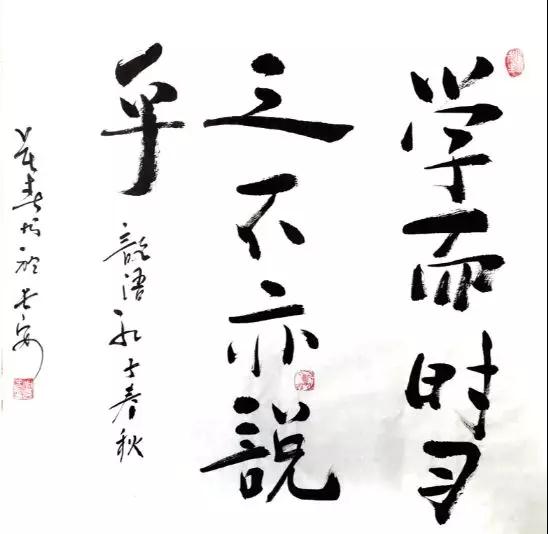 学而时习
之不亦説
乎
語孔子春秋
春於长安